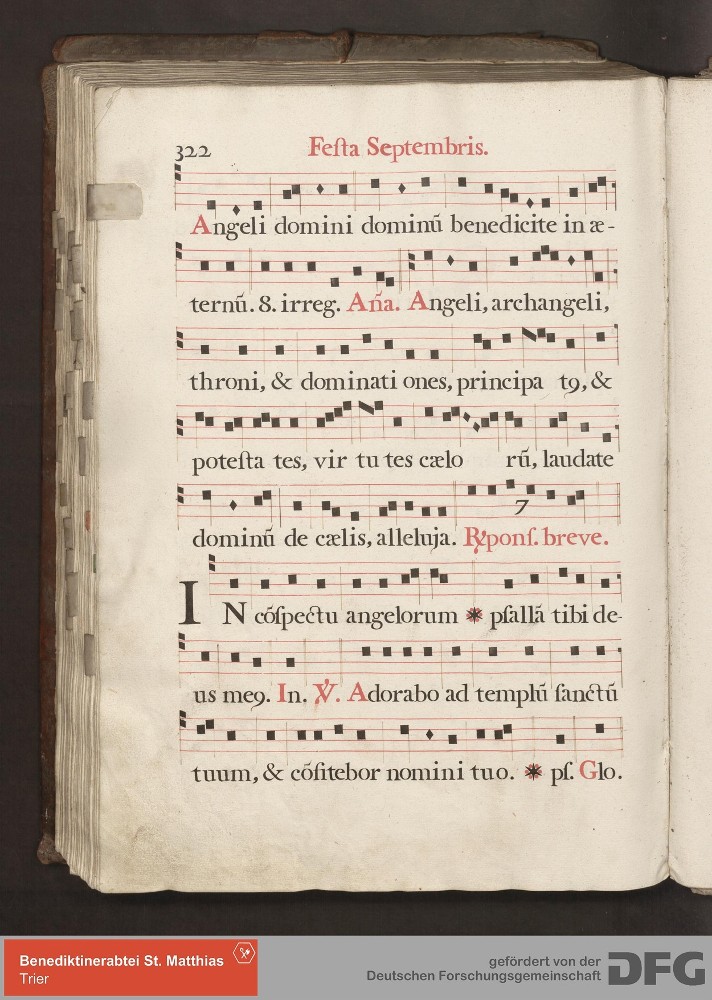 322 Feſta Septembris.
Angeli domini dominũ benedicite in æ-
ternũ. 8. irreg. Añã. Angeli, archangeli,
throni, & dominati ones, principa tꝯ, &
poteſta tes, vir tu tes cælo rũ, laudate
7
dominũ de cælis, alleluja. ℞ponſ. breve.
IN cõſpectu angelorum ⁕ pſallã tibi de-
us meꝯ. In. ℣. Adorabo ad templũ ſanctũ
tuum, & cõfitebor nomini tuo. ⁕ pſ. Glo.
Benediktinerabtei St. Matthias
Trier
gefördert von der
Deutschen Forschungsgemeinschaft DFG